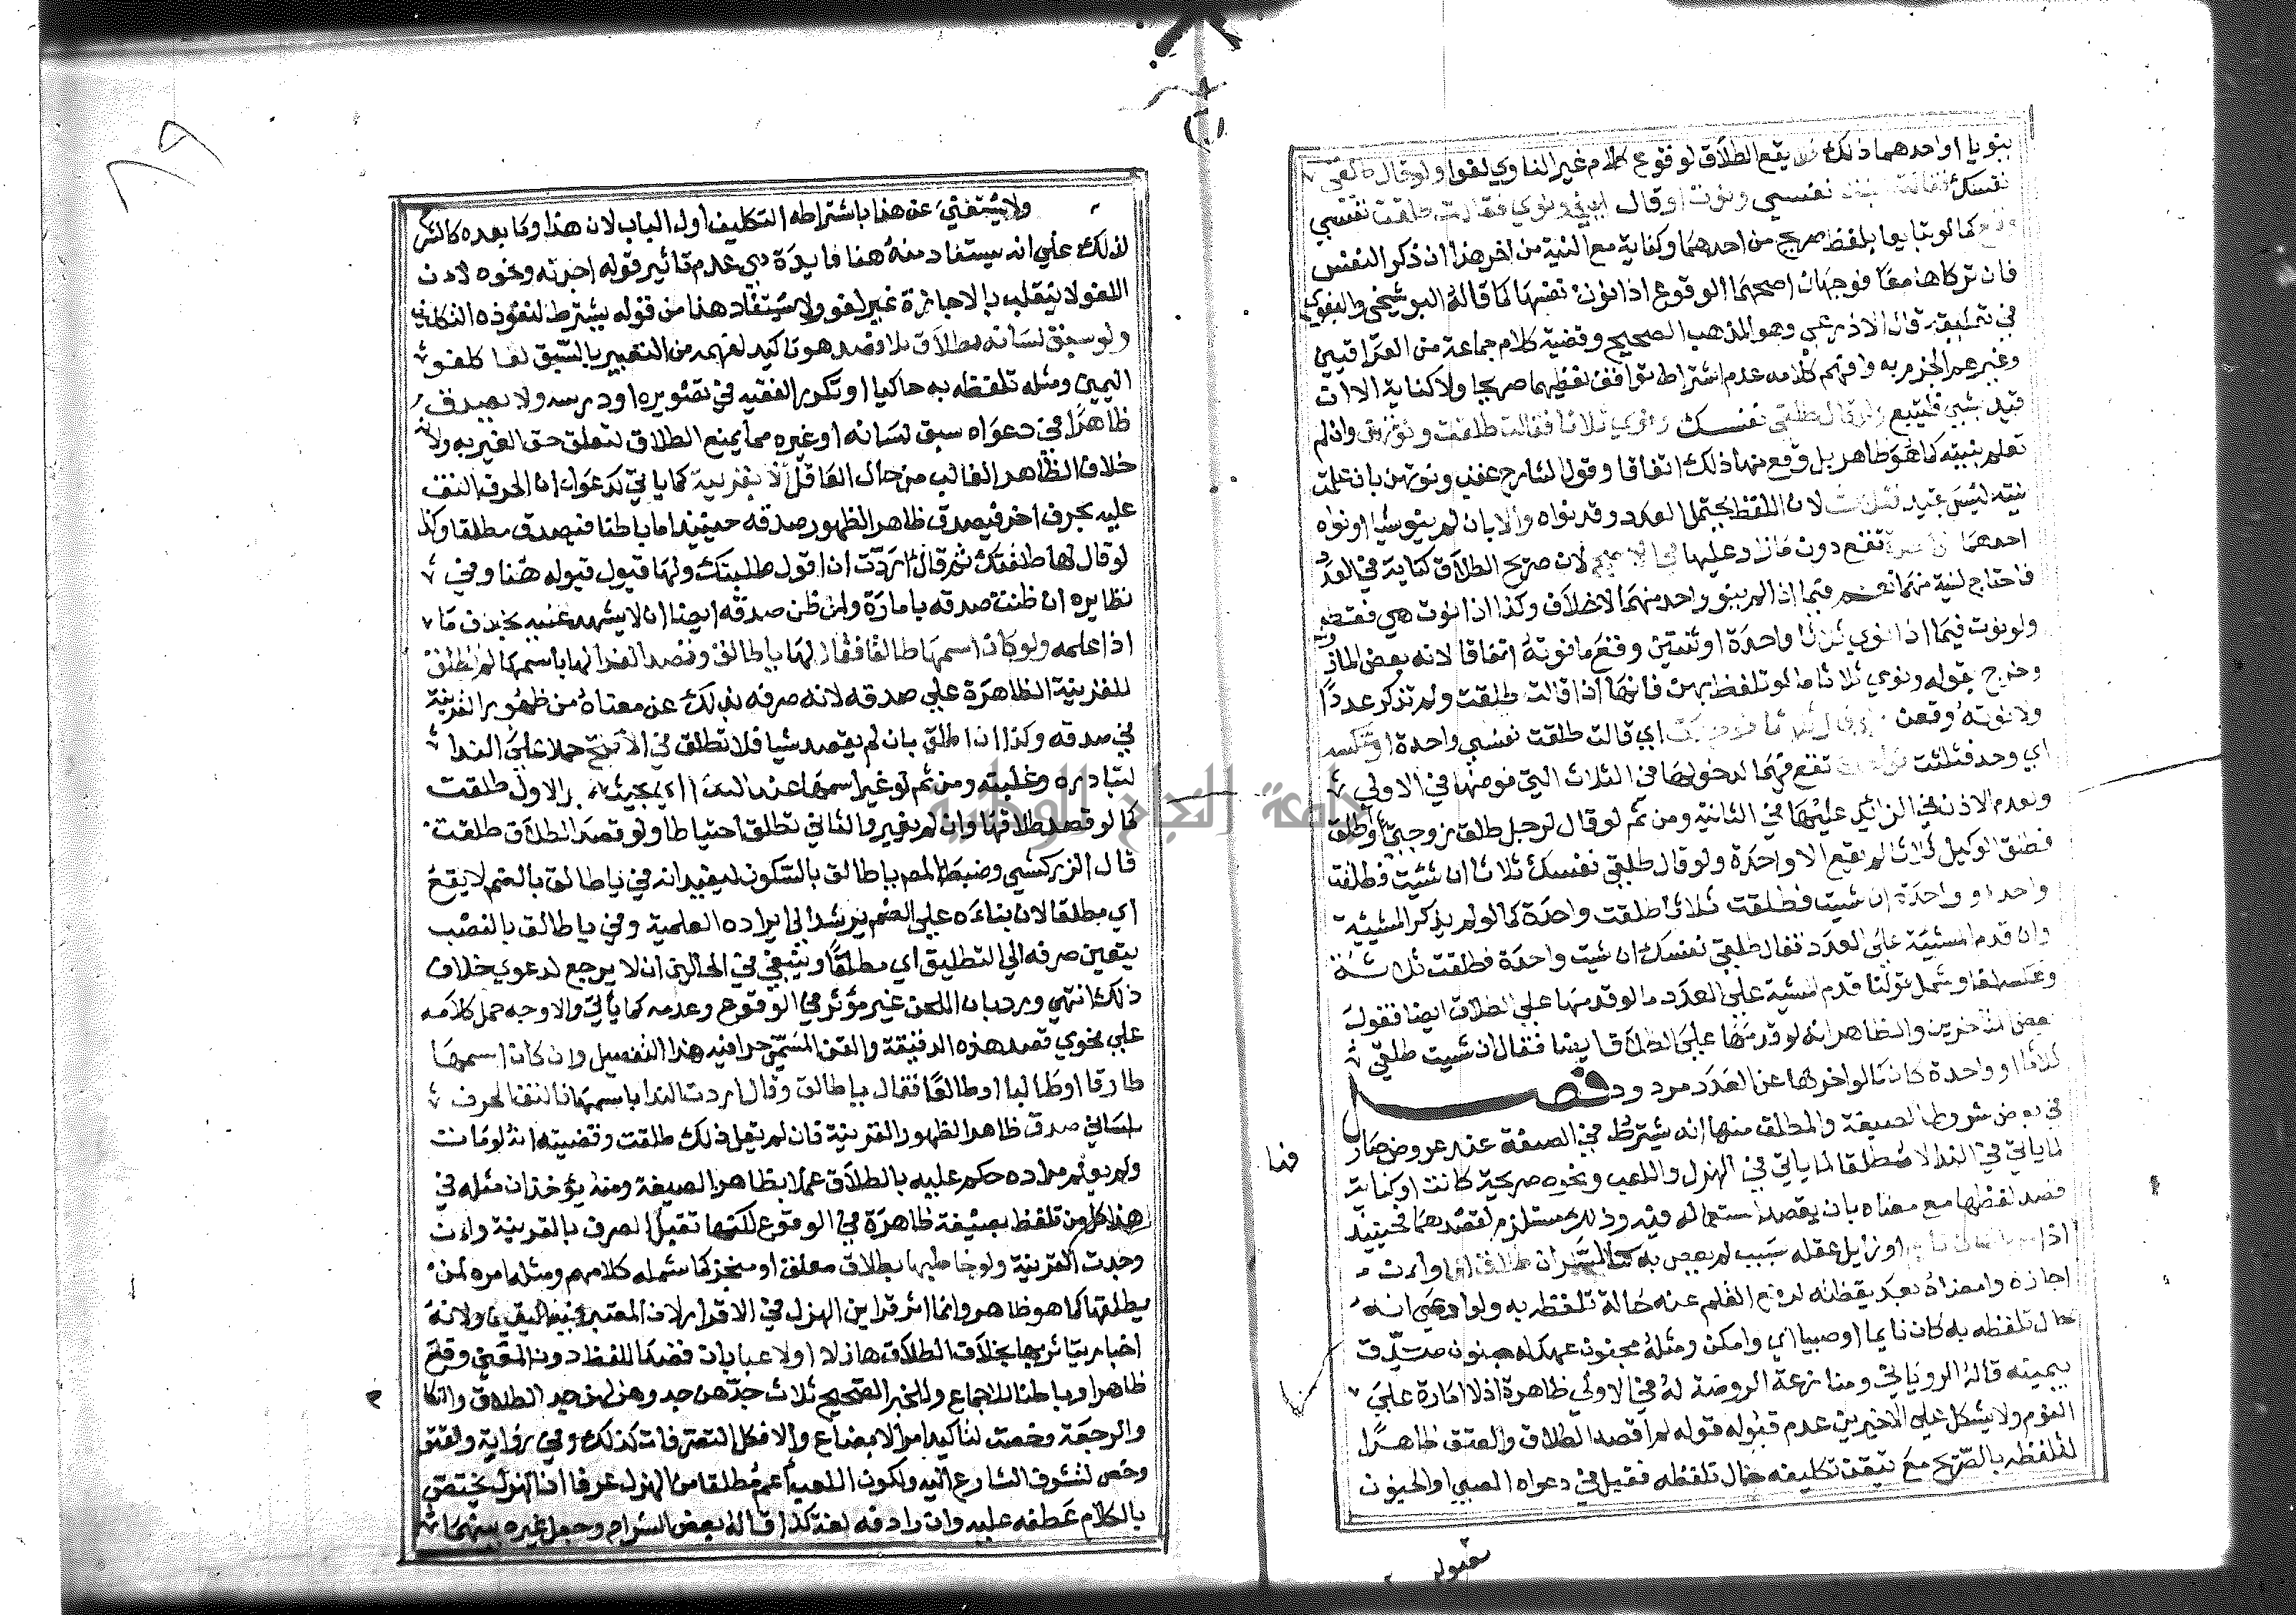 ينويا او احدهما ذلك يقع الطلاق لوقوع كلام غير الناوي لغوا ولو قال طلقي
نفسك فقالت نفسي ونوت او قال ونوي فقالت طلقت نفسي
وقع كما لو تبايعا بلفظ صريح من احدهما وكناية مع النية من اخر هذا ان ذكر النفس
فان تركاها معا فوجهان اصحهما الوقوع اذا نوت نفسها كما قاله البوشنجي والبغوي
في تعليقه قال الاذرعي وهو المذهب الصحيح وقضية كلام جماعة من العراقيين
وغيرهم الجزم به وافهم كلامه عدم اشتراط توافق لفظيهما صريحا ولا كناية الا ان
قيد بشي فليتبع ولو قال طلقي نفسك ونوي ثلاثا فقالت طلقت ونوتهن وان لم
تعلم بنيته كما هو ظاهر بل وقع منها ذلك اتفاقا وقول الشارح عقب ونوتهن بان علمت
نيته ليس بقيد لان اللفظ يحتمل العدد وقد نواه والا بان لم ينو شيا او نواه
احدهما تقع دون ما زاد عليها في الاصح لان صريح الطلاق كناية في العدد
فاحتاج لنية منهما نعم فيما اذا لم ينو واحد منهما لا خلاف وكذا اذا نوت هي فقط
ولو نوت فيما اذا نوي ثلاثا واحدة او ثنتين وقع ما نوته اتفاقا لانه بعض الماذون
وخرج بقوله ونوي ثلاثا ما لو تلفظ بهن فانها اذا قالت طلقت ولم تذكر عددا
ولا نوته وقعن اي قالت طلقت نفسي واحدة او عكسه
اي وحد فثلثت تقع فيهما لدخولها في الثلاث التي فوضها في الاولي
ولعدم الاذن في الزائد عليها في الثانية ومن ثم لو قال لرجل طلق زوجتي واطلق
فطلق الوكيل ثلاثا لم يقع الا واحدة ولو قال طلقي نفسك ثلاثا ان شئت فطلقت
واحدة او واحدة ان شيت فطلقت ثلاثا طلقت واحدة كما لو لم يذكر المشيئة
وان قدم المشيئة علي العدد فقال طلقي نفسك ان شيت واحدة فطلقت ثلاثة
وعكسه لغا وشمل قولنا قدم المشية علي العدد ما لو قدمها علي الطلاق ايضا فقول
بعض المتاخرين والظاهر انه لو قدمها علي الطلاق ايضا فقال ان شيت طلقي
ثلاثا او واحدة كان كما لو اخرها عن العدد مردود فصل
في بعض شروط الصيغة والمطلق منها انه يشترط في الصيغة عند عروض صارف
لما ياتي في الندا لا مطلقا لما ياتي في الهزل واللعب ونحوه صريحة كانت او كناية
قصد لفظها مع معناه بان يقصد استعماله فيه وذلك مستلزم لقصدهما فحينئذ
اذا او زايل عقله بسبب لم يعص به وان
اجازه وامضاه بعد يقظته لرفع القلم عنه حالة تلفظه به ولو ادعي انه
حال تلفظه به كان نايما او صبيا اي وامكن ومثله مجنون عهد له جنون صدق
بيمينه قاله الروياني ومنازعة الروضة له في الاولي ظاهرة اذ لا امارة علي
النوم ولا يشكل علي الاخيرين عدم قبوله قوله لم اقصد الطلاق والعتق ظاهرا
لتلفظه بالصريح مع تيقن تكليفه حال تلفظه فقيل في دعواه الصبي او الجنون
ولا يستغني عن هذا باشتراطه التكليف اول الباب لان هذا وما بعده كالشرح
لذلك علي انه يستفاد منه هنا فايدة هي عدم تاثير قوله اجزته ونحوه لان
اللغو لا ينقلب بالاجازة غير لغو ولا يستفاد هذا من قوله يشترط لنفوذه التكليف
ولو سبق لسانه بطلاق بلا قصد هو تاكيد لفهمه من التعبير بالسبق لغا كلغو
اليمين ومثله تلفظه به حاكيا او تكرر الفقيه في تصويره او درسه ولا يصدق
ظاهرا في دعواه سبق لسانه او غيره مما يمنع الطلاق لتعلق حق الغير به ولانه
خلاف الظاهر الغالب من حال العاقل الا بقرينة كما ياتي كدعواه ان الحرف التف
عليه بحرف اخر فيصدق ظاهرا لظهور صدقه حينئذ اما باطنا فيصدق مطلقا وكذا
لو قال لها طلقتك ثم قال اردت ان اقول طلبتك ولها قبول قوله هنا وفي
نظايره ان ظنت صدقه بامارة ولمن ظن صدقه ايضا ان لا يشهد عليه بخلاف ما
اذا علمه ولو كان اسمها طالقا فقال لها يا طالق وقصد الندا لها باسمها لم تطلق
للقرينة الظاهرة علي صدقه لانه صرفه بذلك عن معناه من ظهور القرينة
في صدقه وكذا ان اطلق بان لم يقصد شيا فلا تطلق في الاصح حملا علي الندا
لتبادره وغلبته ومن ثم لو غير اسمها عند الندا اي بحيث الاول طلقت
كما لو قصد طلاقها وان لم يغير والثاني تطلق احتياطا ولو قصد الطلاق طلقت
قال الزركشي وضبط المص يا طالق بالسكون ليفيد انه في يا طالق بالضم لا يقع
اي مطلقا لان بناءه علي الضم يرشد الي ايراده العلمية وفي يا طالق بالنصب
يتعين صرفه الي التطليق اي مطلقا وينبغي في الحالين ان لا يرجع لدعوي خلاف
ذلك انتهي ويرد بان اللحن غير مؤثر في الوقوع وعدمه كما ياتي والاوجه حمل كلامه
علي نحوي قصد هذه الدقيقة هذا التفصيل وان كان اسمها
طارقا او طالبا او طالعا فقال يا طالق وقال اردت الندا باسمها فالتف الحرف
بلساني صدق ظاهرا لظهور القرينة فان لم يقل ذلك طلقت وقضيته انه لو مات
ولم يعلم مراده حكم عليه بالطلاق عملا بظاهر الصيغة ومنه يؤخذ ان مثله في
هذا كل من تلفظ بصيغة ظاهرة في الوقوع لكنها تقبل الصرف بالقرينة وان
وجدت القرينة ولو خاطبها بطلاق معلق او منجز كما شمله كلامهم ومثله امره لمن
يطلقها كما هو ظاهر وانما اثر قراين الهزل في الاقرار لان المعتبر فيه اليقين ولانه
اخبار يتاثر بها بخلاف الطلاق هازلا او لاعبا بان قصد اللفظ دون المعني وقع
ظاهرا وباطنا للاجماع وللخبر الصحيح ثلاث جدهن جد وهزلهن جد الطلاق والنكاح
والرجعة وخصت لتاكيد امر الابضاع والا فكل التصرفات كذلك وفي رواية والعتق
وخص لتشوف الشارع اليه ولكون اللعب اعم مطلقا من الهزل عرفا اذ الهزل يختص
بالكلام عطفه عليه وان رادفه لغة كذا قاله بعض الشراح وجعل غيره بينهما
جامعة النجاح الوطنية